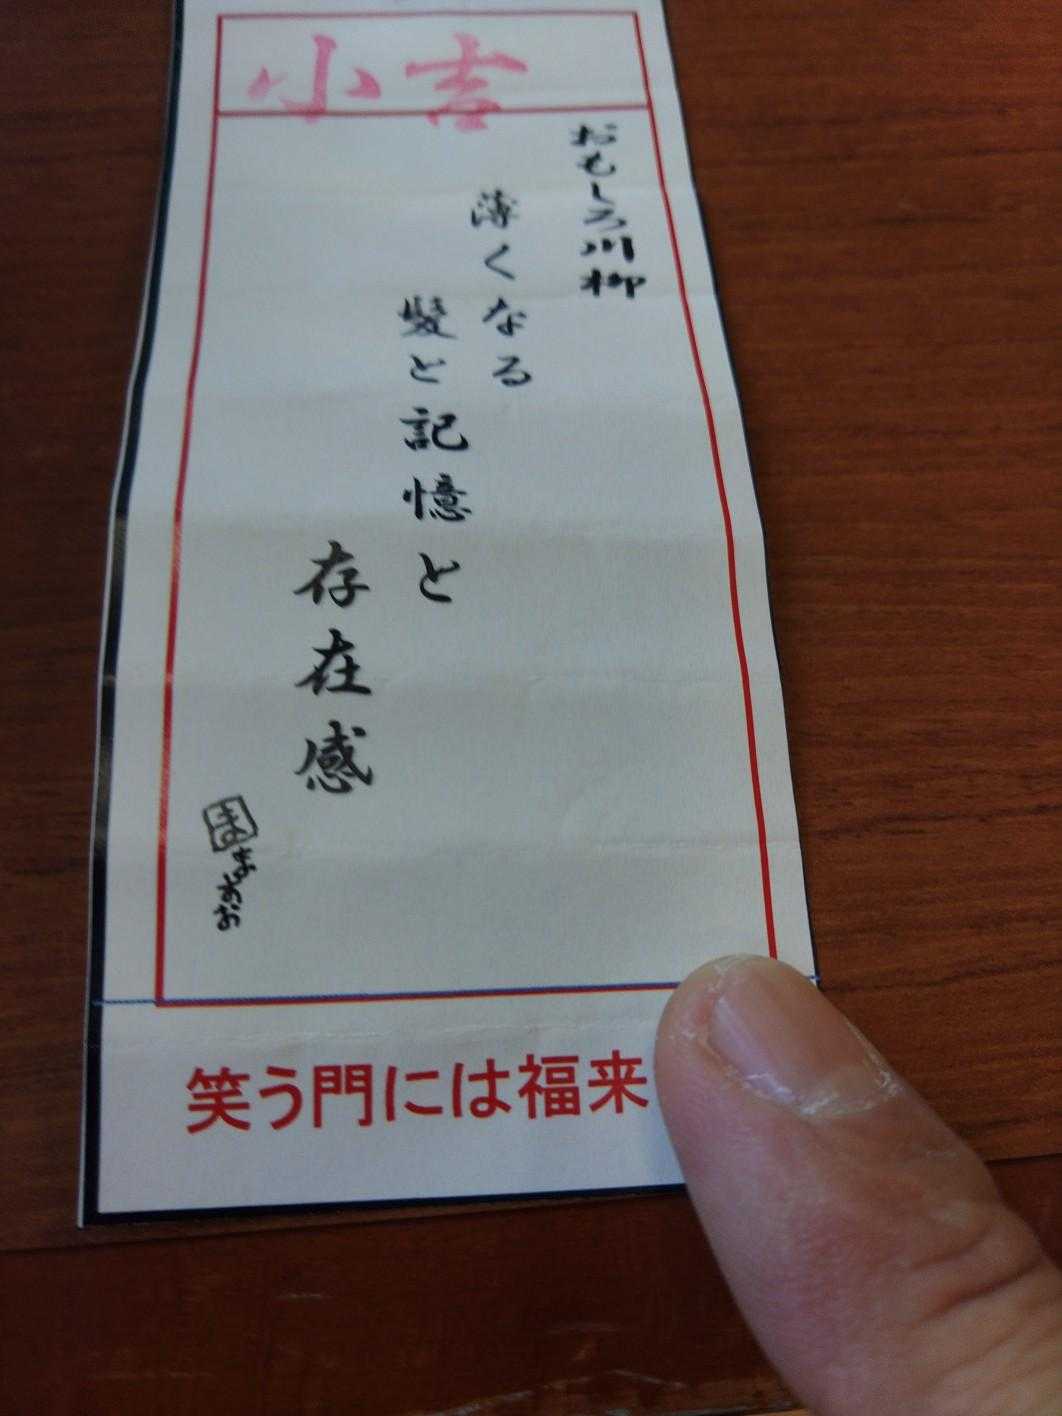 小吉
おもしろ川柳
薄くなる
髪と記憶と
存在感
まさお
笑う門には福来